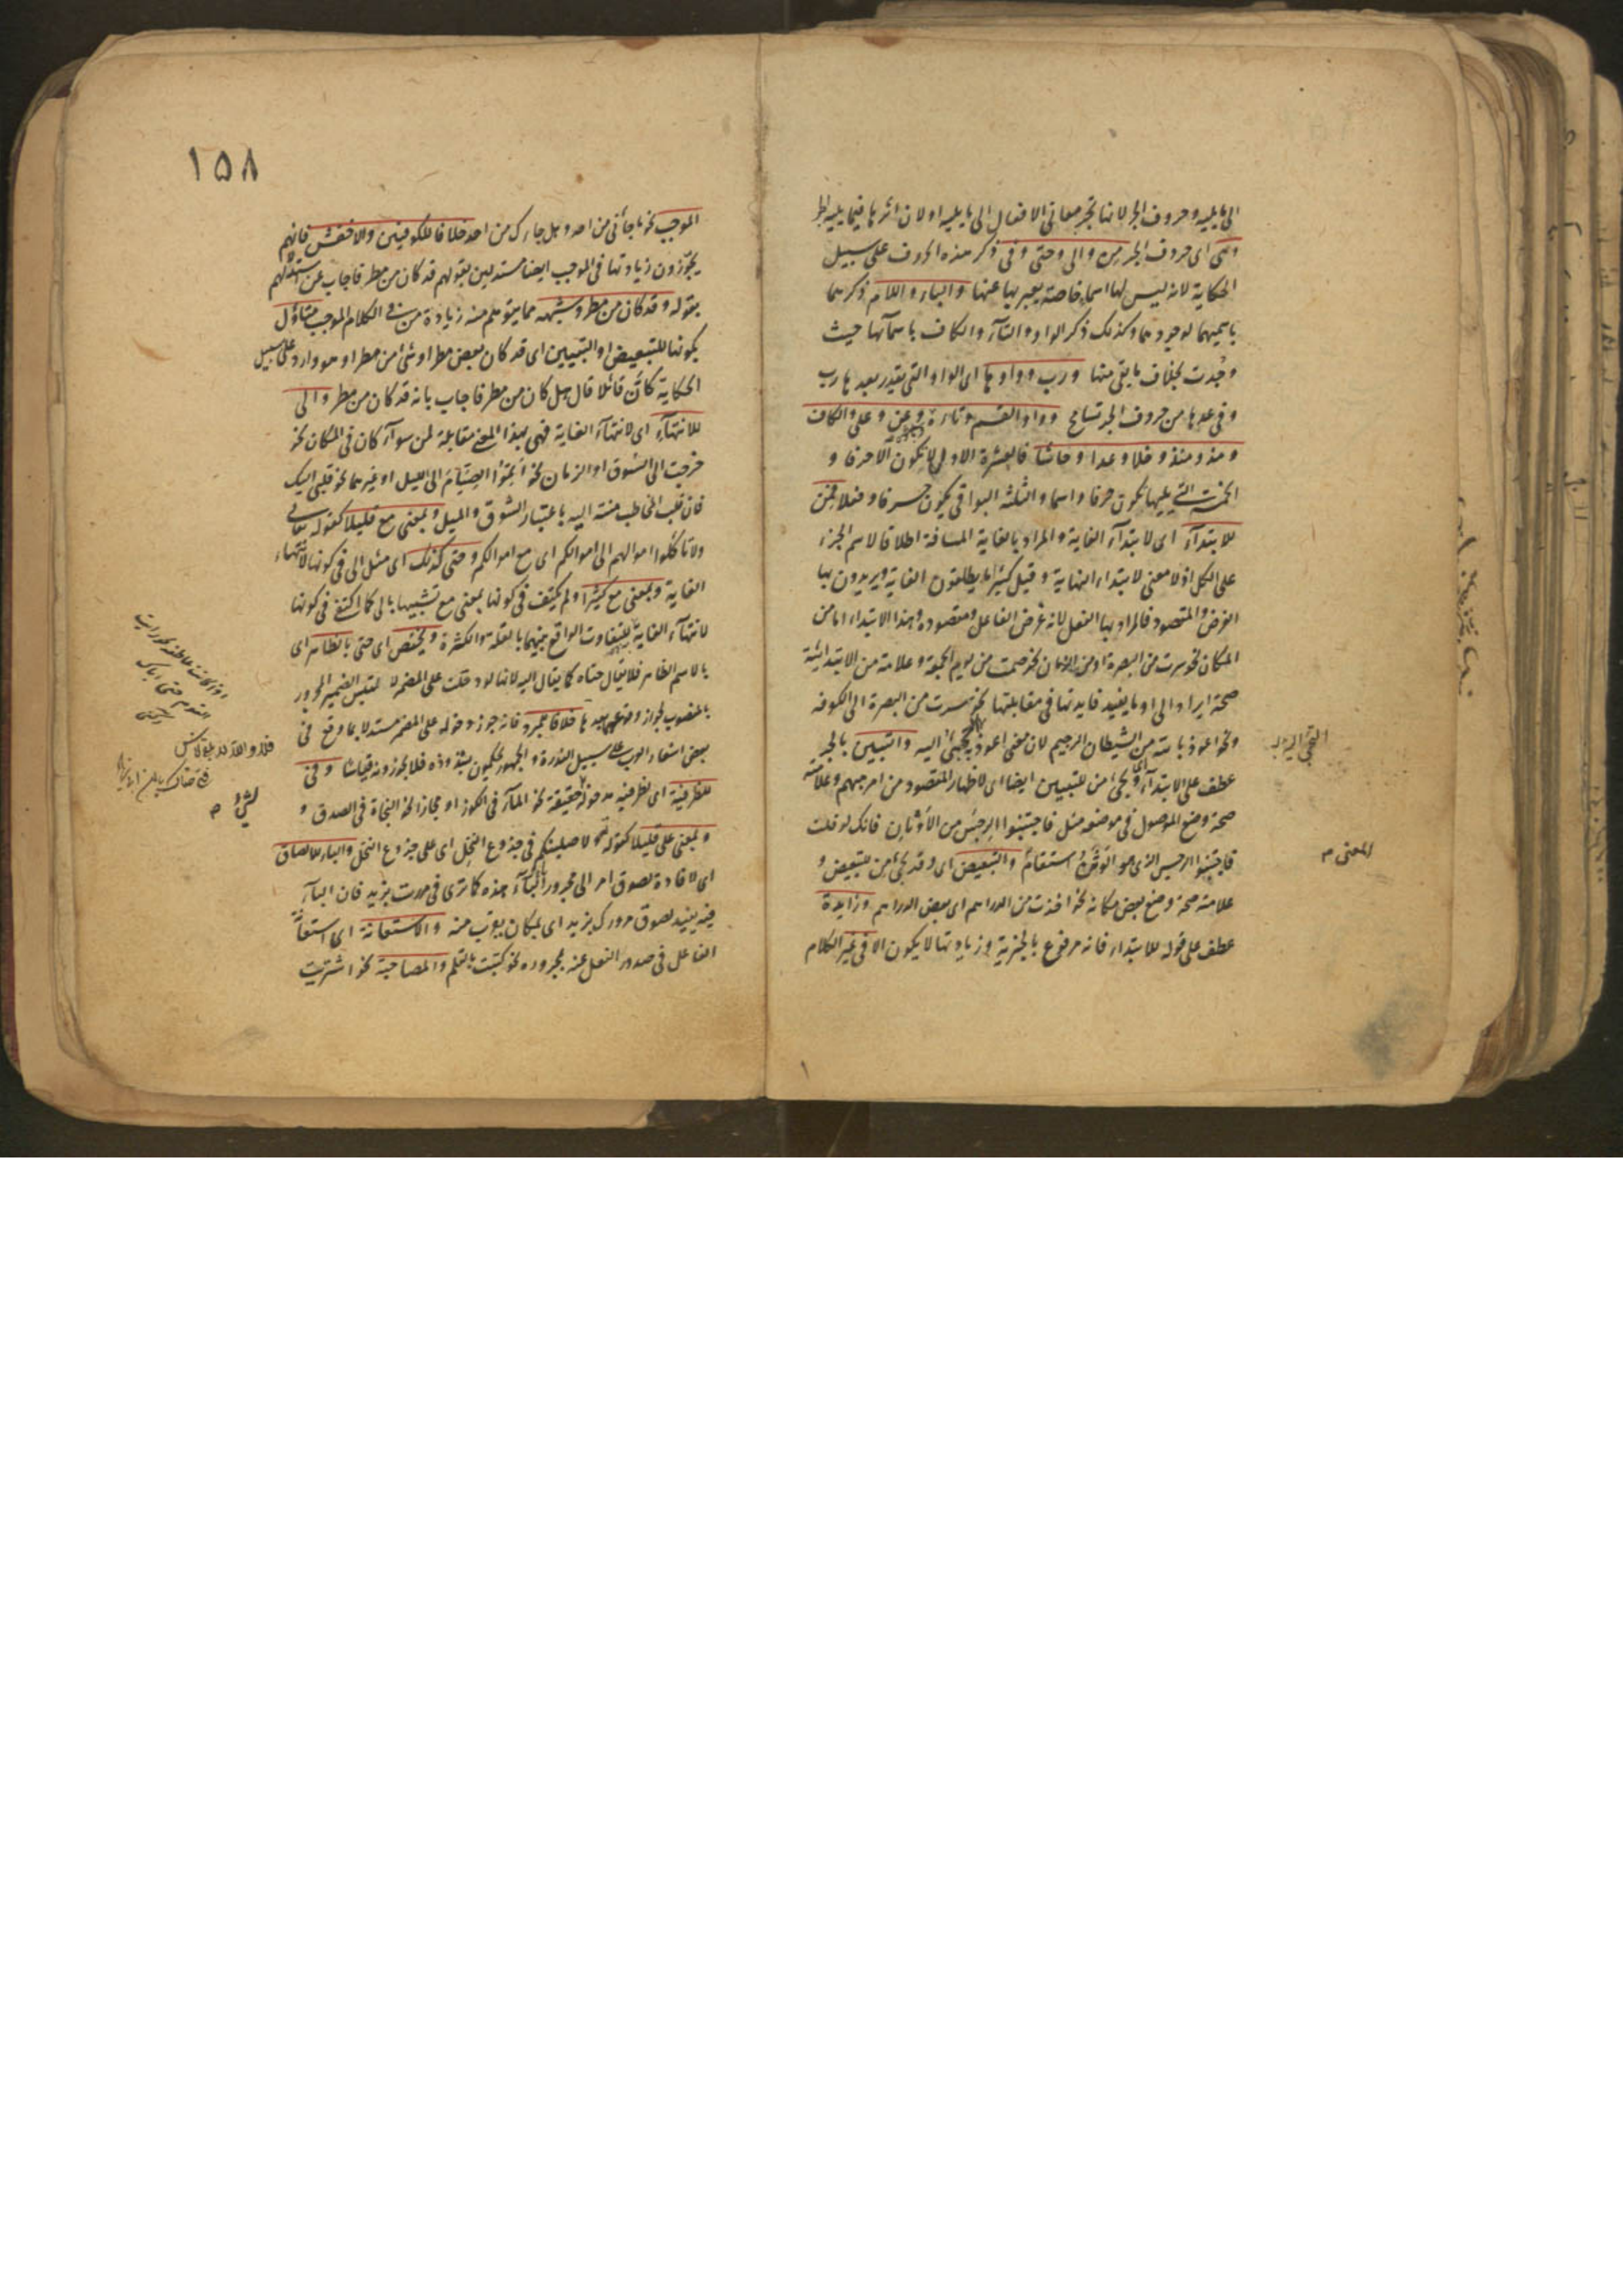 الى ما يليه وحروف الجر لانها تجر معانى الافعال الى ما يليه او لان اثرها فيما يليه الجر
وهى اى حروف الجر من والى وحتى وفى ذكر هذه الحروف على سبيل
الحكاية لانه ليس لها اسماء خاصة يعبر بها عنها والباء واللام ذكرهما
باسميهما لوجودهما وكذلك ذكر الواو والتآء والكاف باسمآئها حيث
وجدت بخلاف ما بقى منها ورب وواوها اى الواو التى يقدر بعدها رب
وفى عدها من حروف الجر تسامح وواو القسم وتاءه وعن وعلى والكاف
ومذ ومنذ وخلا وعدا وحاشا فالعشرة الاول لا يكون الا حرفا و
الخمسة التى يليها تكون حرفا واسما والثلثة البواقى يكون حرفا وفعلا فمن
للابتدآء اى لابتدآء الغاية والمراد بالغاية المسافة اطلاقا لاسم الجزء
على الكل اذ لا معنى لابتداء النهاية وقيل كثيرا ما يطلقون الغاية ويريدون بها
الغرض والمقصود فالمراد بها الفعل لانه غرض الفاعل ومقصوده وهذا الابتداء اما من
المكان نحو سرت من البصرة او من الزمان نحو صمت من يوم الجمعة وعلامة من الابتدائية
صحة ايراد الى او ما يفيد فايدتها فى مقابلتها نحو سرت من البصرة الى الكوفة
ونحو اعوذ بالله من الشيطان الرجيم لان معنى اعوذ به التجئ اليه والتبيين بالجر
عطف على الابتدآء اى ويجئ من للتبيين ايضا اى لاظهار المقصود من امر مبهم وعلامته
صحة وضع الموصول فى موضعه مثل فاجتنبوا الرجس من الأوثان فانك لو قلت
فاجتنبوا الرجس الذى هو الوثن استقام والتبعيض اى وقد يجئ من للتبعيض و
علامته صحة وضع بعض مكانه نحو اخذت من الدراهم اى بعض الدراهم وزايدة
عطف على قوله للابتداء فانه مرفوع بالخبرية وزيادتها لا يكون الا فى غير الكلام
المعنى م
١٥٨
الموجب نحو ما جاءنى من احد وهل جاءك من احد خلافا للكوفيين والاخفش فانهم
يجوّزون زيادتها فى الموجب ايضا مستدلين بقولهم قد كان من مطر فاجاب عن استدلالهم
بقوله وقد كان من مطر وشبهه مما يتوهم منه زيادة من فى الكلام الموجب متأول
بكونها للتبعيض او التبيين اى قد كان بعض مطر او شئ من مطر او هو وارد على سبيل
الحكاية كأن قائلا قال هل كان من مطر فاجاب بانه قد كان من مطر والى
للانتهآء اى لانتهآء الغاية فهى بهذا المعنى مقابلة لمن سوآء كان فى المكان نحو
خرجت الى السوق او الزمان نحو أتموا الصيام الى الليل او غيرهما نحو قلبى اليك
فان قلب المخاطب منته اليه باعتبار الشوق والميل وبمعنى مع قليلا كقوله تعالى
ولا تأكلوا اموالهم الى اموالكم اى مع اموالكم وحتى كذلك اى مثل الى فى كونها لانتهاء
الغاية وبمعنى مع كثيرا ولم يكتف فى كونها بمعنى مع تشبيهها بالى كما اكتفى فى كونها
لانتهآء الغاية للتفاوت الواقع بينهما بالقلة والكثرة ويختص اى حتى بالظاهر اى
بالاسم الظاهر فلا يقال حتاه كما يقال اليه لانها لو دخلت على المضمر لالتبس الضمير المجرور
بالمنصوب لجواز وقوعهما بعدها خلافا للمبرد فانه جوز دخوله على المضمر مستدلا بما وقع فى
بعض اشعار العرب على سبيل الندرة والجمهور يحكمون بشذوذه فلا يجوزونه قياسا وفى
للظرفية اى لظرفية مدخولها حقيقة نحو المآء فى الكوز او مجازا نحو النجاة فى الصدق و
وبمعنى على قليلا كقوله تعالى ولاصلبنكم فى جذوع النخل اى على جذوع النخل والباء للالصاق
اى لافادة لصوق امر الى مجرور البآء هذه كما ترى فى مررت بزيد فان البآء
فيه يفيد لصوق مرورك بزيد اى بمكان يقرب منه والاستعانة اى استعانة
الفاعل فى صدور الفعل عنه بمجروره نحو كتبت بالقلم والمصاحبة نحو اشتريت